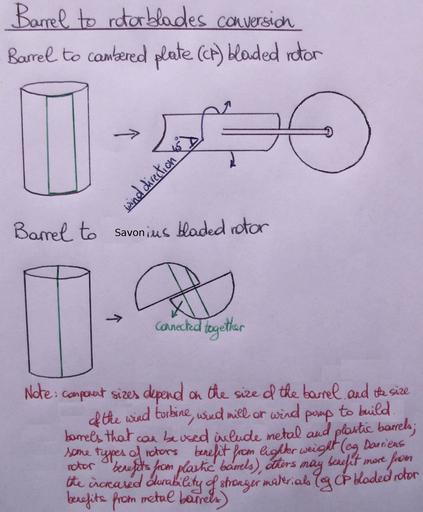 Barrel to rotorblades conversion
Barrel to cambered plate (CP) bladed rotor
15°
wind direction
Barrel to Savonius bladed rotor
connected together
Note: component sizes depend on the size of the barrel and the size
of the wind turbine, wind mill or wind pump to build.
barrels that can be used include metal and plastic barrels;
some types of rotors benefit from lighter weight (eg Darrieus
rotor benefits from plastic barrels), others may benefit more from
the increased durability of stronger materials (eg CP bladed rotor
benefits from metal barrels)